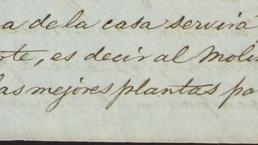 a de la casa servirá
rte, es decir al Moli
las mejores plantas pa